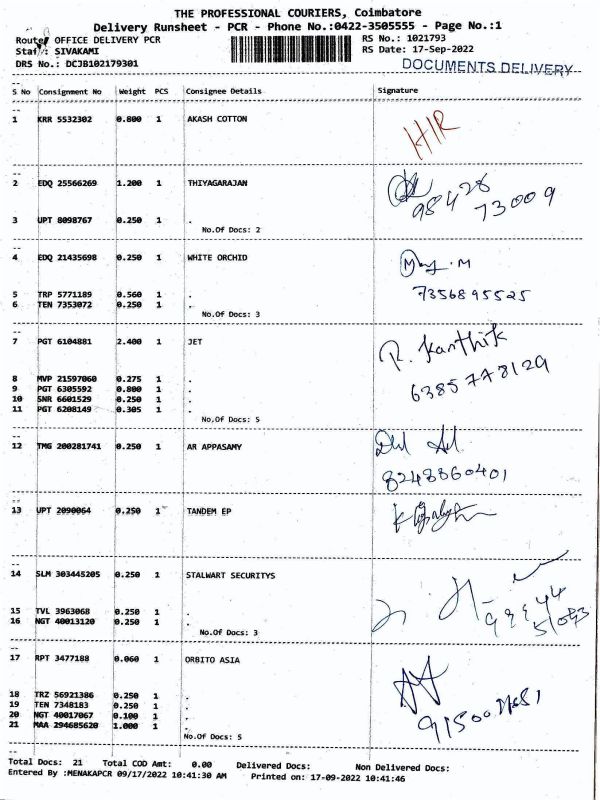 THE PROFESSIONAL COURIERS, Coimbatore
Delivery Runsheet - PCR - Phone No.:0422-3505555 - Page No.:1
Route: OFFICE DELIVERY PCR RS No.: 1021793
Staff: SIVAKAMI RS Date: 17-Sep-2022
DRS No.: DCJB102179301 DOCUMENTS DELIVERY
S No Consignment No Weight PCS Consignee Details Signature
1 KRR 5532302 0.800 1 AKASH COTTON
H/R
2 EDQ 25566269 1.200 1 THIYAGARAJAN
98428
73009
3 UPT 8098767 0.250 1 .
No.Of Docs: 2
4 EDQ 21435698 0.250 1 WHITE ORCHID
5 TRP 5771189 0.560 1 .
7356895525
6 TEN 7353072 0.250 1 .
No.Of Docs: 3
7 PGT 6104881 2.400 1 JET
R. Karthik
8 MVP 21597060 0.275 1 .
6385778129
9 PGT 6305592 0.800 1 .
10 SNR 6601529 0.250 1 .
11 PGT 6208149 0.305 1 .
No.Of Docs: 5
12 TMG 200281741 0.250 1 AR APPASAMY
8248860401
13 UPT 2090064 0.250 1 TANDEM EP
14 SLM 303445205 0.250 1 STALWART SECURITYS
15 TVL 3963068 0.250 1 .
16 NGT 40013120 0.250 1 .
No.Of Docs: 3
17 RPT 3477188 0.060 1 ORBITO ASIA
18 TRZ 56921386 0.250 1 .
19 TEN 7348183 0.250 1 .
20 NGT 40017067 0.100 1 .
21 MAA 294685620 1.000 1 .
No.Of Docs: 5
Total Docs: 21 Total COD Amt: 0.00 Delivered Docs: Non Delivered Docs:
Entered By :MENAKAPCR 09/17/2022 10:41:30 AM Printed on: 17-09-2022 10:41:46